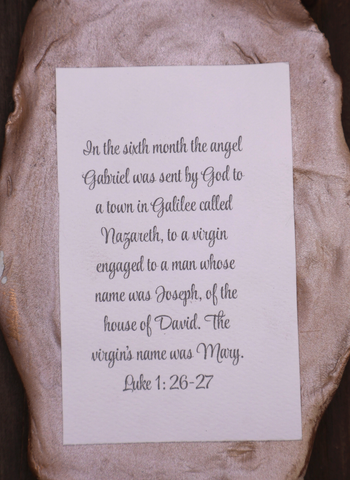 In the sixth month the angel
Gabriel was sent by God to
a town in Galilee called
Nazareth, to a virgin
engaged to a man whose
name was Joseph, of the
house of David. The
virgin's name was Mary.
Luke 1: 26-27